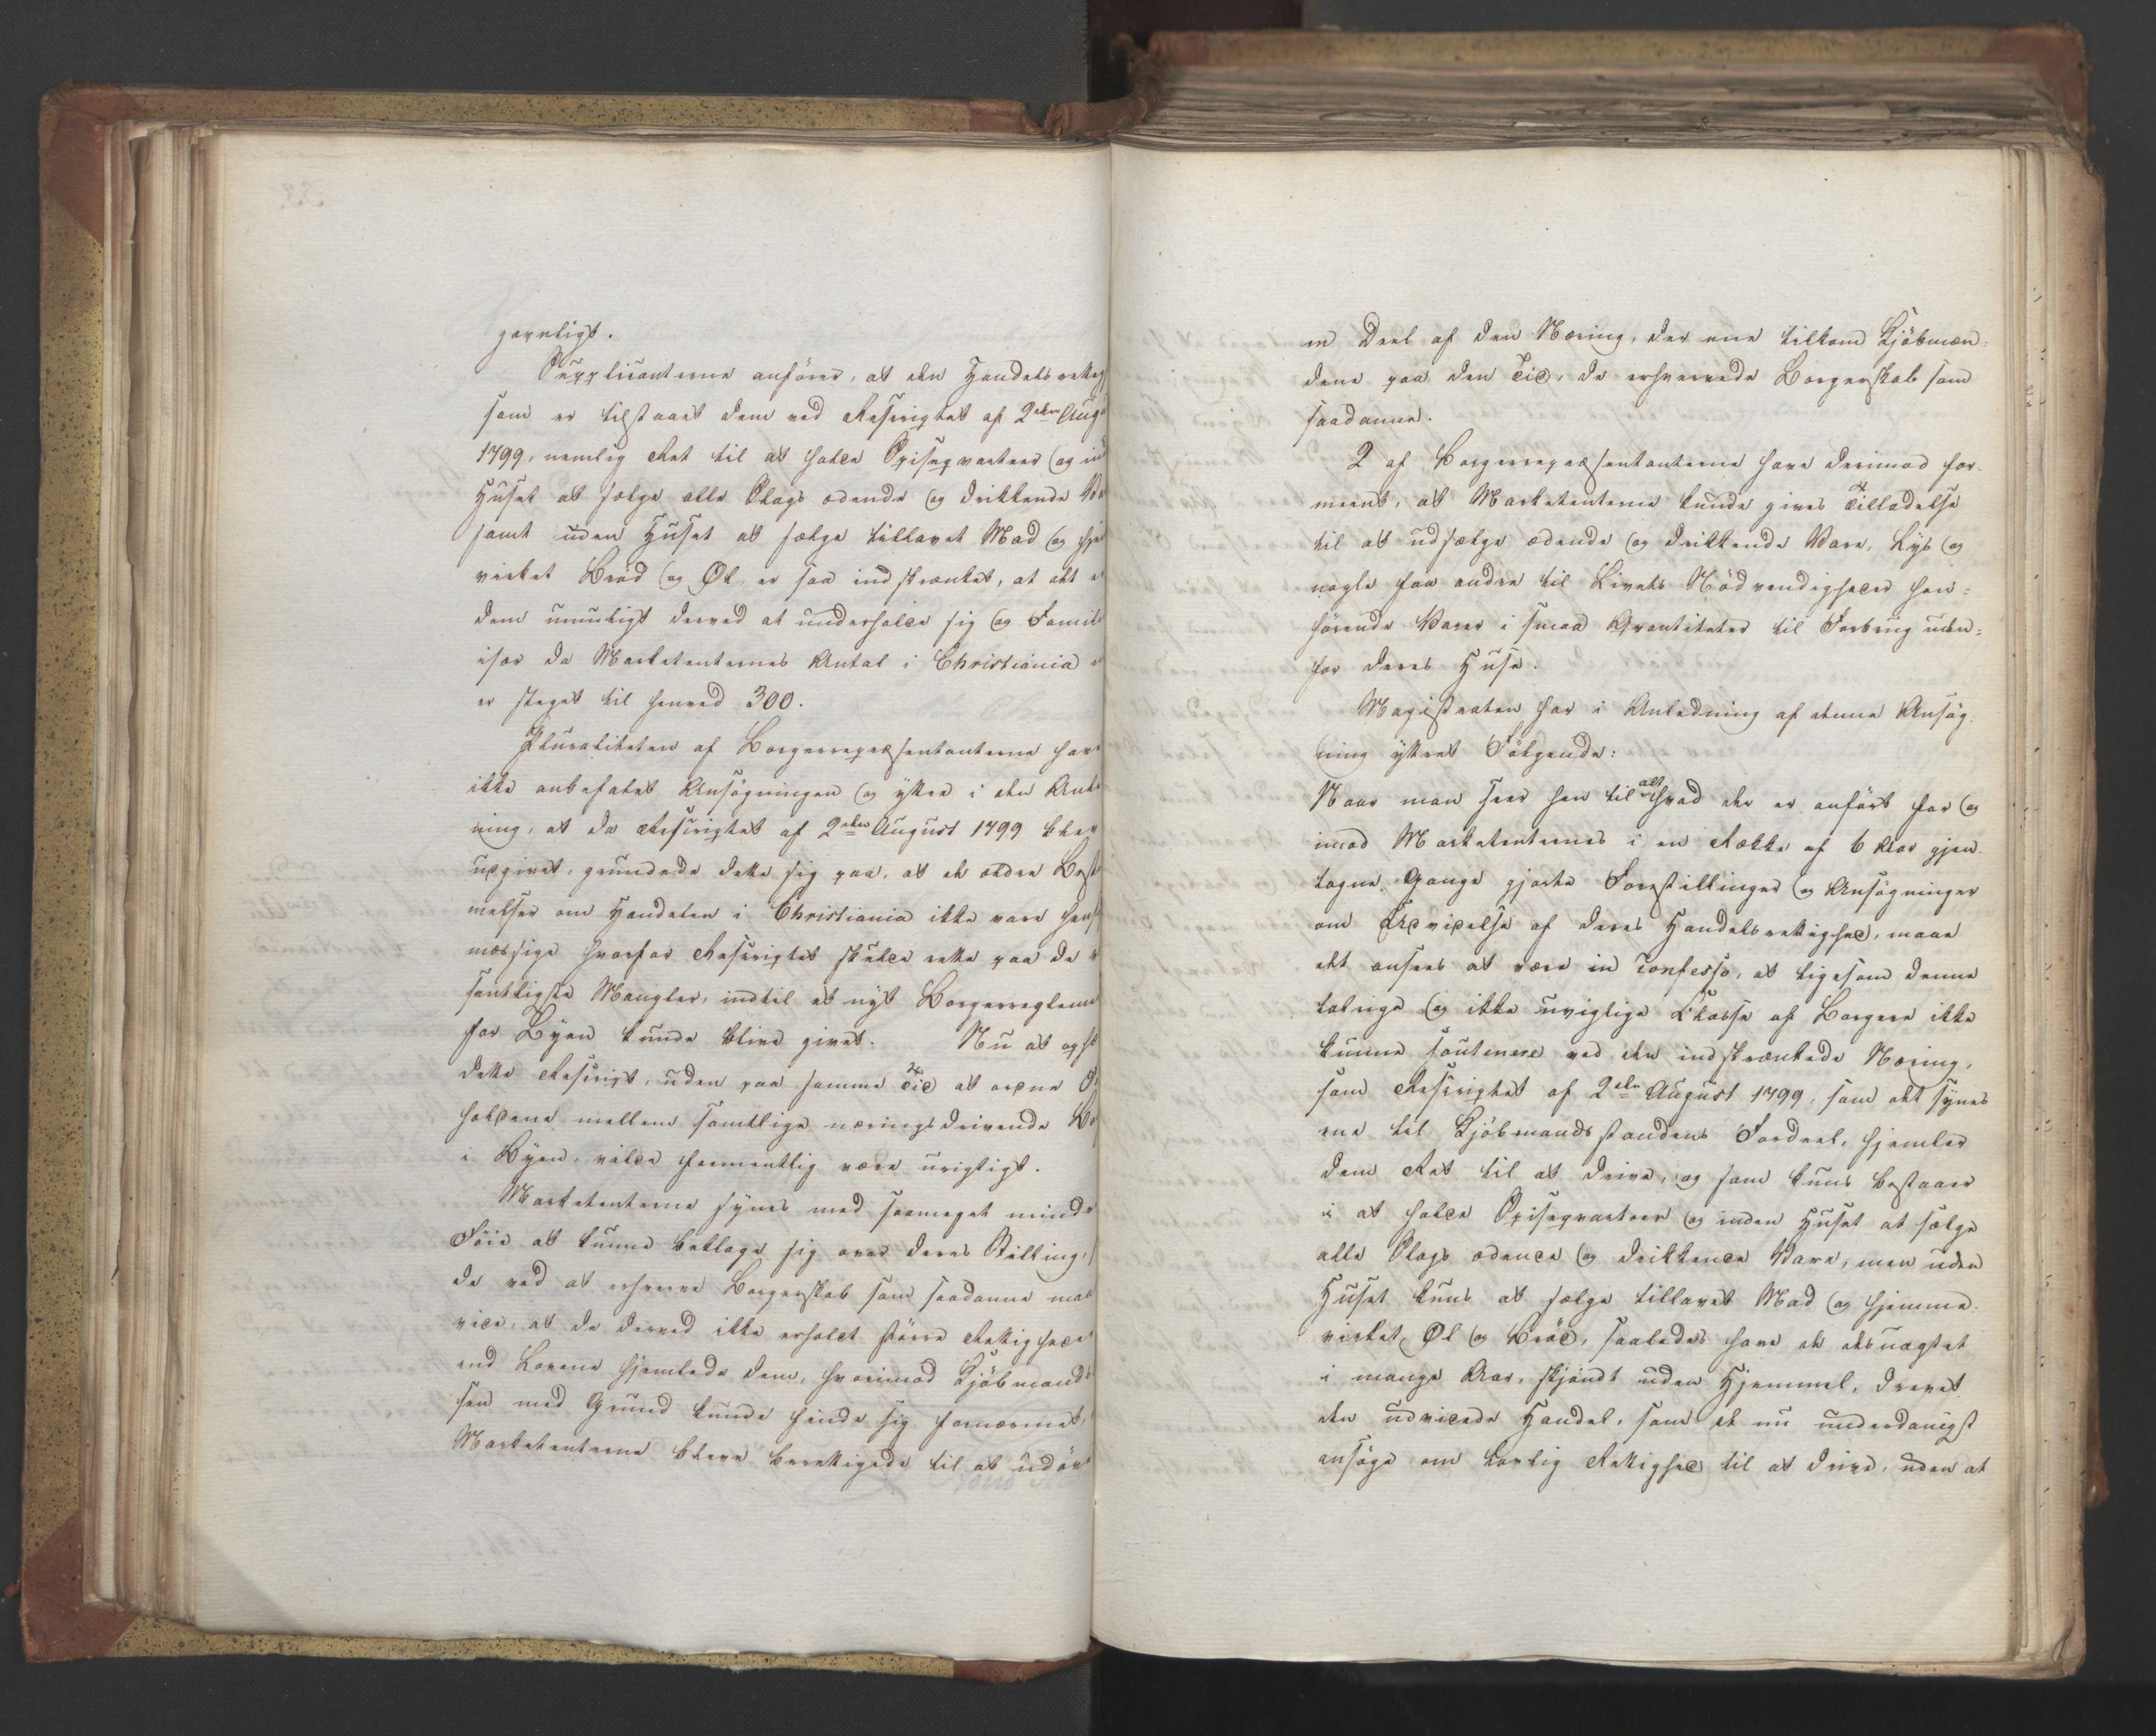 gavnligt.
Supplicanterne anfører, at den Handelsrettig
som er tilstaaet dem ved Rescriptet af 2den Aug
1799, nemlig Ret til at holde Spiseqvarteer og in
Huset at sælge alle Slags ædende og drikkende Va
samt uden Huset at sælge tillavet Mad og hje
virket Bröd og Øl, er saa indskrænket, at det e
dem umuligt derved at underholde sig og Famili
især da Marketenternes Antal i Christiania
er steget til henved 300.
Pluraliteten af Borgerrepræsentanterne have
ikke anbefalet Ansøgningen og yttre i den Anle
ning, at da Rescriptet af 2den August 1799 blev
udgivet, grundede dette sig paa, at de ældre Best
melser om Handelen i Christiania ikke vare hens
mæssige hvorfor Rescriptet skulde rette paa de
sentligste Mangler, indtil et nyt Borgerreglem
for Byen kunde blive givet. Nu at oph
dette Rescript, uden paa samme Tid at ordne
holdene mellem samtlige næringsdrivende Bo
i Byen, vilde formentlig være urigtigt.
Marketenterne synes med saameget mindre
Föie at kunne beklage sig over deres Stilling,
de ved at erhverve Borgerskab som saadanne maa
vide, at de derved ikke erholdt större Rettigheder
end Lovene hjemlede dem, hvorimod Kjöbmands
sen med Grund kunde finde sig fornærmet,
Marketenterne bleve berettigede til at udöve
en Deel af den Næring, der ene tilkom Kjöbmæn-
dene paa den Tid, de erhvervede Borgerskab som
saadanne.
2 af Borgerrepræsentanterne have derimod for-
meent, at Marketenterne kunde gives Tilladelse
til at udsælge ædende og drikkende Vare, Lys og
nogle faa andre til Livets Nödvendigheder hen-
hörende Varer i smaa Qvantiteter til Forbrug uden-
for deres Huse.
Magistraten har i Anledning af denne Ansög-
ning yttret Fölgende:
Naar man seer hen til alt hvad der er anfört for og
imod Marketenternes i en Række af 6 Aar gjen-
tagne Gange gjorte Forestillinger og Ansögninger
om Udvidelse af deres Handelsrettighed, maae
det ansees at være in Confesso, at ligesom denne
talrige og ikke uvigtige Classe af Borgere ikke
kunne soutinere ved den indskrænkede Næring,
som Rescriptet af 2den August 1799, som det synes
ene til Kjöbmandsstandens Fordeel, hjemler
dem Ret til at drive, og som kuns bestaaer
i at holde Spiseqvarteer og inden Huset at sælge
alle Slags ædende og drikkende Vare, men uden
Huset kuns at sælge tillavet Mad og hjemme-
virket Øl og Bröd, saaledes have de desuagtet
i mange Aar, skjöndt uden Hjemmel, drevet
den udvidede Handel, som de nu underdanigst
ansöge om lovlig Rettighed til at drive, uden at